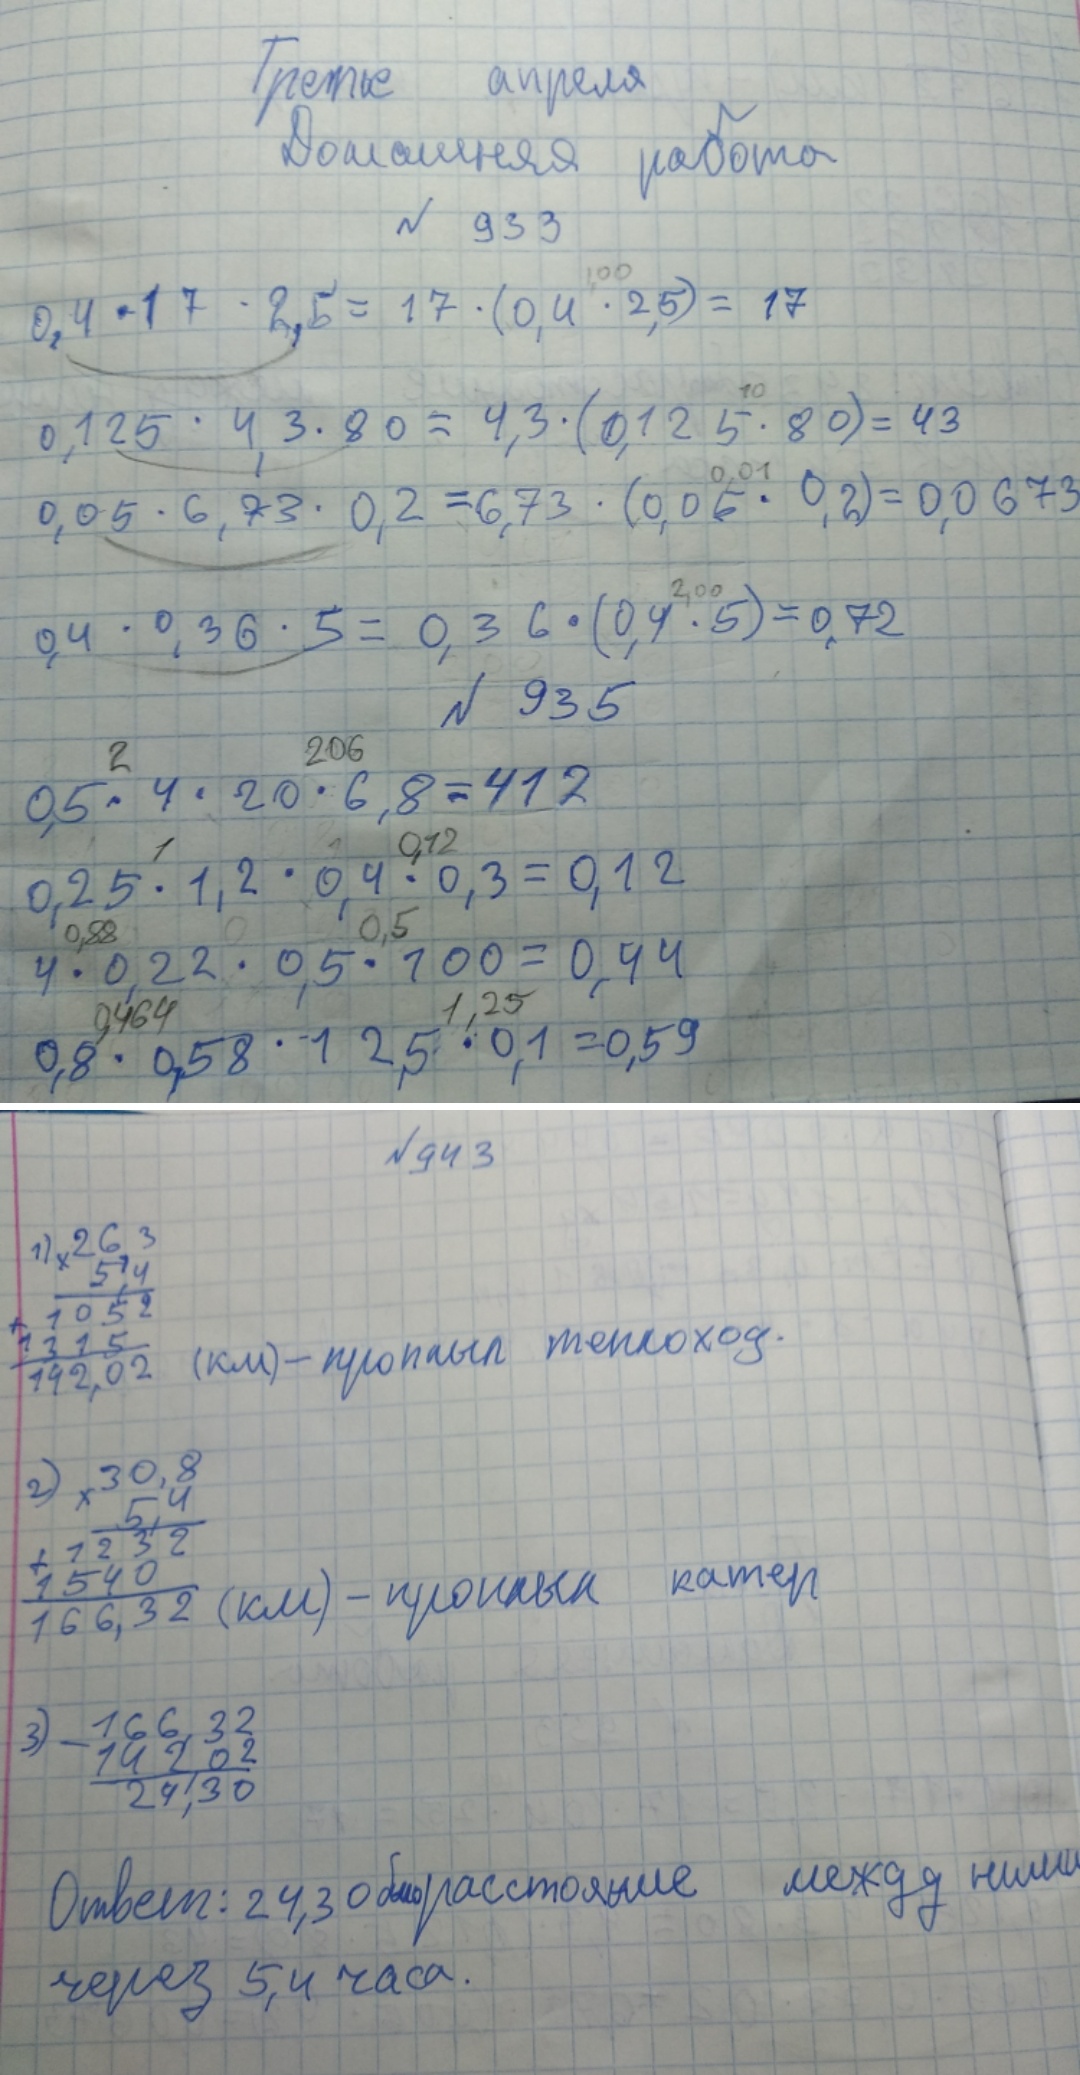 Третье апреля
Домашняя работа
№ 933
1,00
0,4 · 17 · 2,5 = 17 · (0,4 · 2,5) = 17
10
0,125 · 4,3 · 80 = 4,3 · (0,125 · 80) = 43
0,01
0,05 · 6,73 · 0,2 = 6,73 · (0,05 · 0,2) = 0,0673
2,00
0,4 · 0,36 · 5 = 0,36 · (0,4 · 5) = 0,72
№ 935
2 206
0,5 · 4 · 20 · 6,8 = 412
1 0,12
0,25 · 1,2 · 0,4 · 0,3 = 0,12
0,88 0,5
4 · 0,22 · 0,5 · 100 = 0,44
0,464 1,25
0,8 · 0,58 · 12,5 · 0,1 = 0,59
№ 943
1) × 26,3
5,4
+ 1052
1315
142,02 (км) – проплыл теплоход.
2) × 30,8
5,4
+ 1232
1540
166,32 (км) – проплыл катер
3) – 166,32
142,02
24,30
Ответ: 24,30 было расстояние между ними
через 5,4 часа.